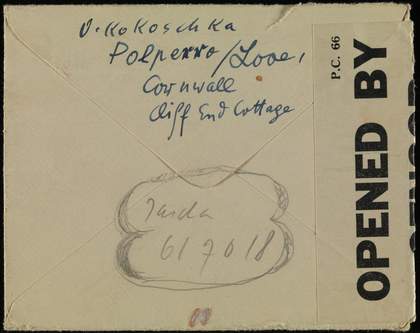 O. Kokoschka
Polperro/Looe,
Cornwall
Cliff End Cottage
P.C. 66
OPENED BY
617018